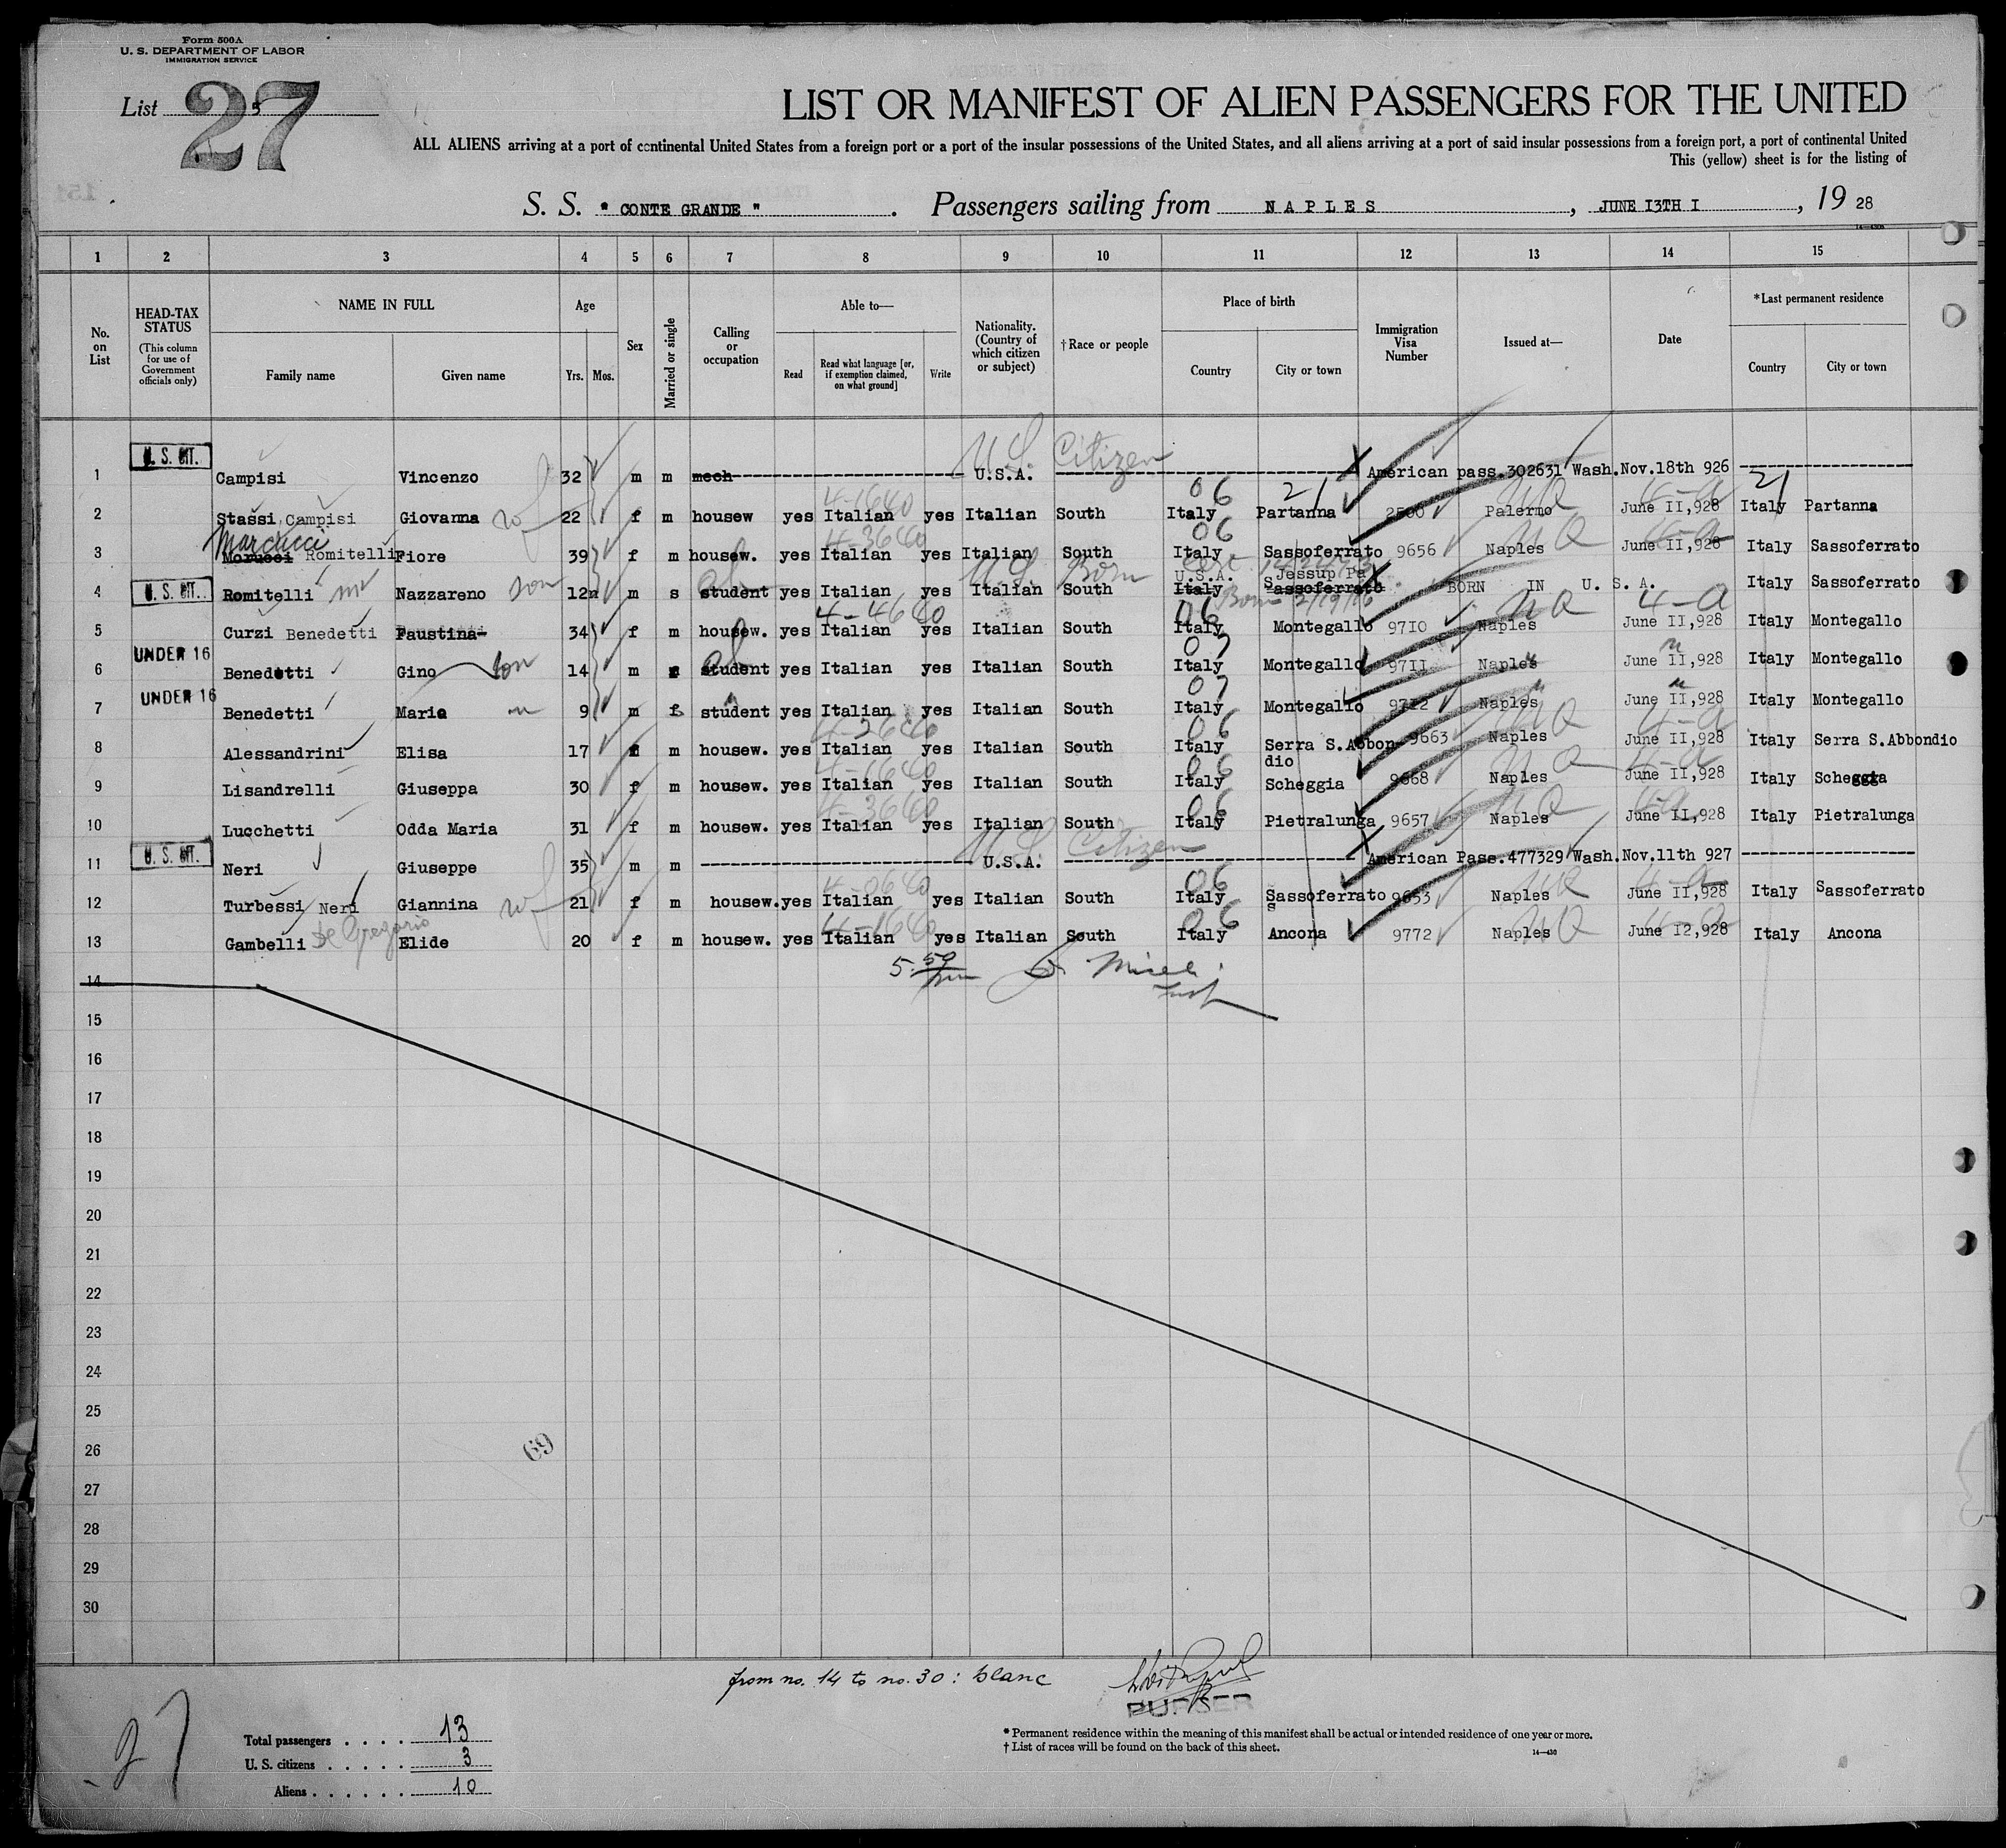 Form 500A
U. S. DEPARTMENT OF LABOR
IMMIGRATION SERVICE
List 5
27
LIST OR MANIFEST OF ALIEN PASSENGERS FOR THE UNITED
ALL ALIENS arriving at a port of continental United States from a foreign port or a port of the insular possessions of the United States, and all aliens arriving at a port of said insular possessions from a foreign port, a port of continental United
This (yellow) sheet is for the listing of
S. S. " CONTE GRANDE " . Passengers sailing from NAPLES , JUNE I3TH I , 19 28
1 2 3 4 5 6 7 8 9 10 11 12 13 14 15
No. on List
HEAD-TAX STATUS
(This column for use of Government officials only)
NAME IN FULL
Family name Given name
Age
Yrs. Mos.
Sex
Married or single
Calling or occupation
Able to—
Read Read what language [or, if exemption claimed, on what ground] Write
Nationality. (Country of which citizen or subject)
†Race or people
Place of birth
Country City or town
Immigration Visa Number
Issued at—
Date
*Last permanent residence
Country City or town
U.S. Citizen
1 U. S. CIT. Campisi Vincenzo 32 m m mech U.S.A. American pass.302631 Wash.Nov.18th 926
4-1640 06 21 21
2 Stassi Campisi Giovanna 22 f m housew yes Italian yes Italian South Italy Partanna 2500 Palermo June II,928 Italy Partanna
Marcucci 4-3640 06
3 Morucci Romitelli Fiore 39 f m housew. yes Italian yes Italian South Italy Sassoferrato 9656 Naples June II,928 Italy Sassoferrato
U.S. Born U.S.A. Jessup Pa
4 U. S. CIT. Romitelli Nazzareno son 12 m s student yes Italian yes Italian South Italy Sassoferrato BORN IN U. S. A. Italy Sassoferrato
4-4640 Born 06 4-a
5 Curzi Benedetti Faustina 34 f m housew. yes Italian yes Italian South Italy Montegallo 9710 Naples June II,928 Italy Montegallo
UNDER 16
6 Benedetti Gino son 14 m student yes Italian yes Italian South Italy Montegallo 9711 Naples June II,928 Italy Montegallo
UNDER 16
7 Benedetti Mario 9 m s student yes Italian yes Italian South Italy Montegallo 9712 Naples June II,928 Italy Montegallo
4-2640 06
8 Alessandrini Elisa 17 f m housew. yes Italian yes Italian South Italy Serra S.Abbondio 9663 Naples June II,928 Italy Serra S.Abbondio
4-1640 06
9 Lisandrelli Giuseppa 30 f m housew. yes Italian yes Italian South Italy Scheggia 9668 Naples June II,928 Italy Scheggia
4-3640 06
10 Lucchetti Odda Maria 31 f m housew. yes Italian yes Italian South Italy Pietralunga 9657 Naples June II,928 Italy Pietralunga
U.S. Citizen
11 U. S. CIT. Neri Giuseppe 35 m m U.S.A. American Pass.477329 Wash.Nov.11th 927
4-0640 06
12 Turbessi Neri Giannina 21 f m housew. yes Italian yes Italian South Italy Sassoferrato 9653 Naples June II,928 Italy Sassoferrato
De Gregorio 4-1640 06
13 Gambelli Elide 20 f m housew. yes Italian yes Italian South Italy Ancona 9772 Naples June I2,928 Italy Ancona
14
15
16
17
18
19
20
21
22
23
24
25
26
27
28
29
30
69
from no. 14 to no. 30 : blanc
PURSER
27
Total passengers 13
U. S. citizens 3
Aliens 10
* Permanent residence within the meaning of this manifest shall be actual or intended residence of one year or more.
† List of races will be found on the back of this sheet.
14—430